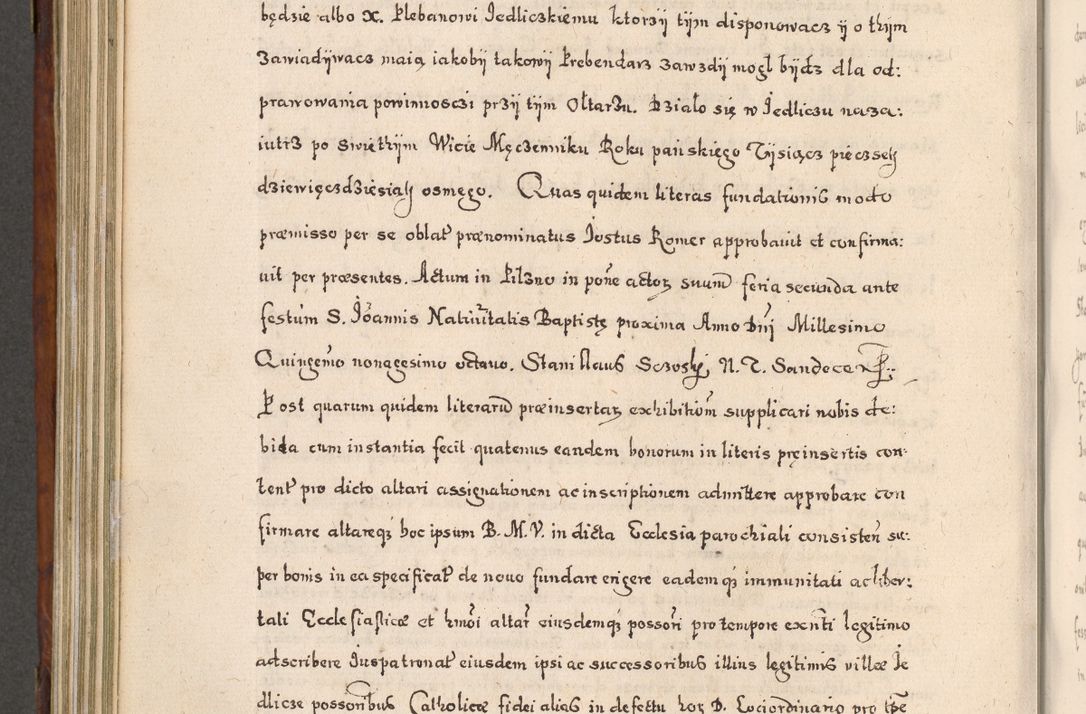 będzie albo X. Plebanowi Jedliczkiemu ktorzÿ tÿm disponowacz ÿ o thÿm
zawiadÿwacz maią iakobÿ takowÿ Prebendarz zawzdÿ mogl bÿdz dla od:
prawowania powinnosczi przÿ tÿm Ołtarzu. Działo się w Jedliczu naza:
iutrz po swięthÿm Wicie Męczenniku Roku pańskiego Tÿsiącz pięczseth
dziewięczdziesiąth osmego. Quas quidem literas fundationis modo
præmisso per se oblat prænominatus Justus Romer approbauit et confirma:
uit per præsentes. Actum in Pilzno in pone actor suum feria secunda ante
festum S. Joannis Natiuitatis Baptistę proxima Anno Dni Millesimo
Quingemo nonagesimo octauo. Stanislaus Sczosky N. T. Sandecen
Post quarum quidem literaru præinsertar exhibitiom supplicari nobis de:
bita cum instantia fecit quatenus eandem bonorum in literis pręinsertis con
tent pro dicto altari assignationem ac inscriptionem admittere approbare con
firmare altareq hoc ipsum B. M. V. in dicta Ecclesia parochiali consisten su:
per bonis in ea specificat de nouo fundare erigere eademq immunitati ac liber:
tali Ecclesiasticæ et hmoi altar eiusdemq possori pro tempore exnti legitimo
adscribere Juspatronat eiusdem ipsi ac successoribus illius legitimis villæ Je
dlicze possoribus Catholicæ fidei alias in defectu hor D. Lociordinario pro tpe